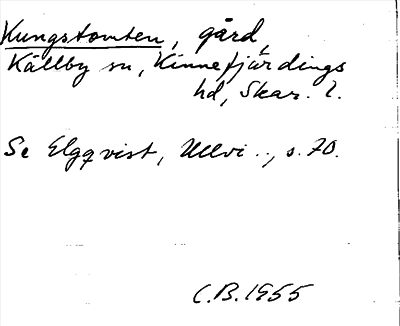 Kungstomten, gård,
Källby sn, Kinnefjärdings
hd, Skar. l.
Se Elgqvist, Ullvi.., s. 70.
C.B. 1955